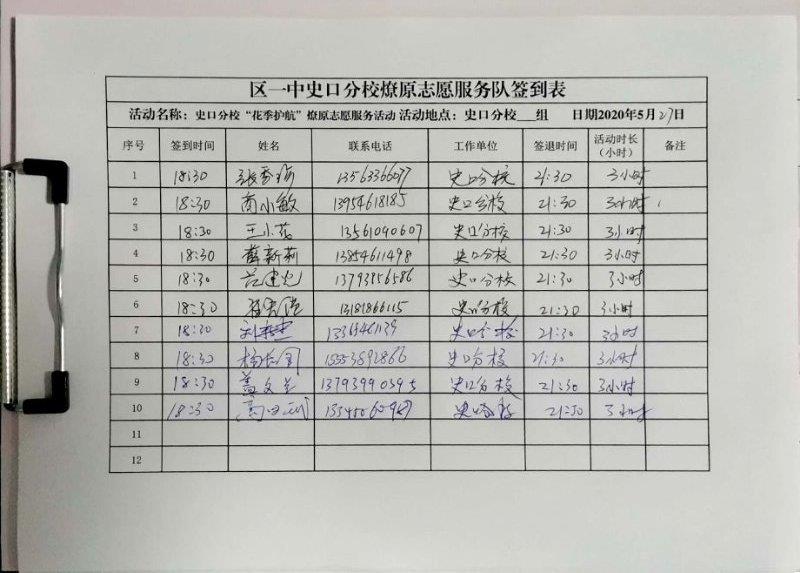 区一中史口分校燎原志愿服务队签到表
活动名称：史口分校“花季护航”燎原志愿服务活动 活动地点：史口分校__组 日期2020年5月27日
序号 签到时间 姓名 联系电话 工作单位 签退时间 活动时长（小时） 备注
1 18:30 史口分校 21:30 3小时
2 18:30 商小敏 13954618185 史口分校 21:30 3小时
3 18:30 王小花 13561090607 史口分校 21:30 3小时
4 18:30 薛新莉 13854611498 史口分校 21:30 3小时
5 18:30 13793856586 史口分校 21:30 3小时
6 18:30 13181866115 史口分校 21:30 3小时
7 18:30 史口分校 21:30 3小时
8 18:30 史口分校 21:30 3小时
9 18:30 盖文兰 13793990395 史口分校 21:30 3小时
10 18:30 史口分校 21:30 3小时
11
12